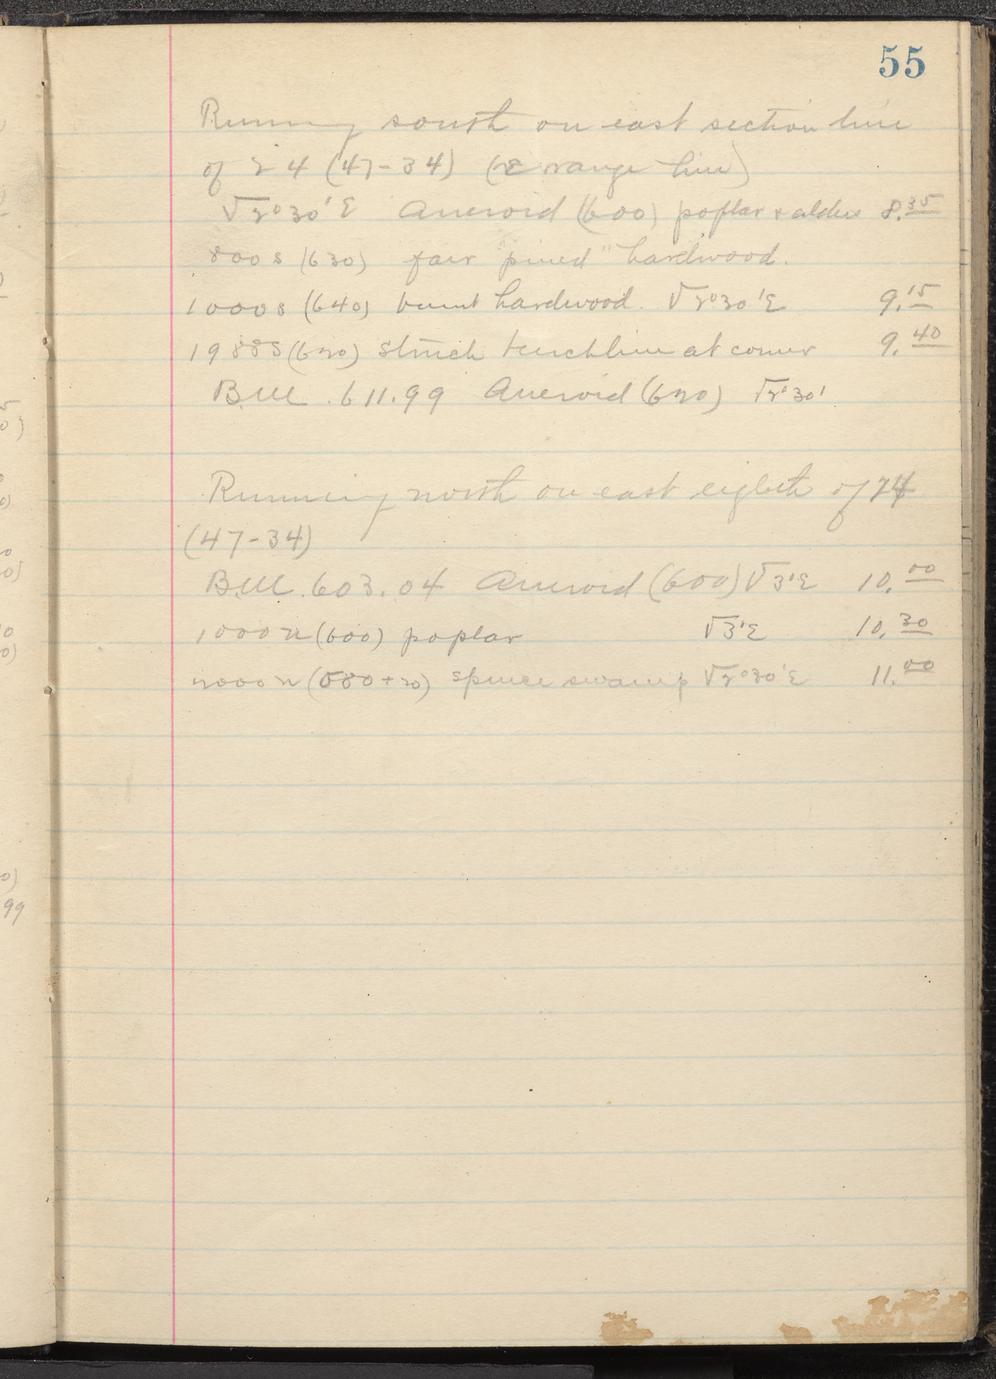 55
Running south on east section line
of 24 (47-34) (E range line)
√2°30'E Aneroid (600) poplar & alder 8.35
800 S (630) fair "pined" hardwood.
1000 S (640) burnt hardwood. √2°30'E 9.15
1988 S (620) struck benchline at corner 9.40
B.M. 611.99 Aneroid (620) √2°30'
Running north on east eighth of 24
(47-34)
B.M. 603.04 Aneroid (600) √3°E 10.00
1000 N (600) poplar √3°E 10.30
2000 N (580+20) spruce swamp √2°30'E 11.00
99